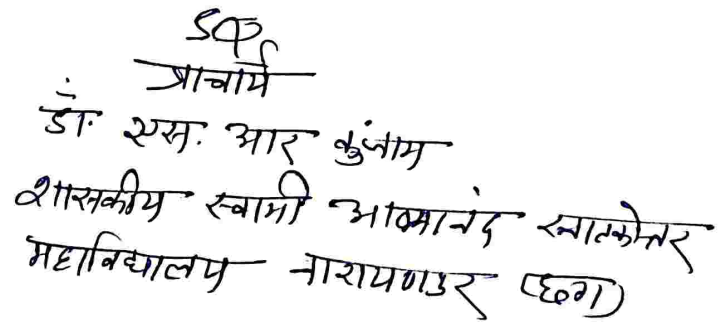 प्राचार्य
डॉ. एस. आर कुंजाम
शासकीय स्वामी आत्मानंद स्नातकोत्तर
महाविद्यालय नारायणपुर (छग)